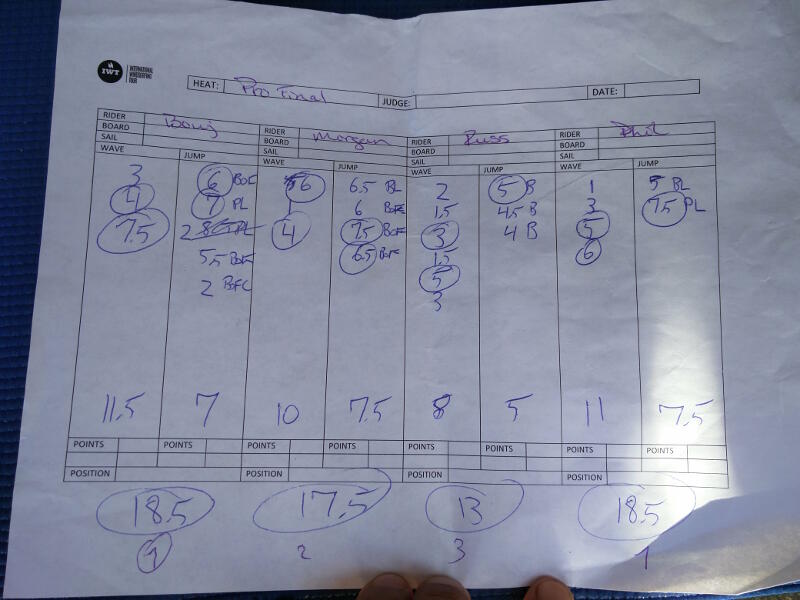 IWT INTERNATIONAL WINDSURFING TOUR
HEAT: Pro Final JUDGE: DATE:
RIDER Bouj RIDER Morgan RIDER Russ RIDER Phil
BOARD BOARD BOARD BOARD
SAIL SAIL SAIL SAIL
WAVE JUMP WAVE JUMP WAVE JUMP WAVE JUMP
3 6 BOF 6 6.5 BL 2 5 B 1 5 BL
4 7 PL 1 6 BOF 1.5 4.5 B 3 7.5 PL
7.5 2 PL 4 7.5 BOF 3 4 B 5
5.5 BOF 6.5 BOF 1.5 6
2 BOFC 5
3
11.5 7 10 7.5 8 5 11 7.5
POINTS POINTS POINTS POINTS POINTS POINTS POINTS POINTS
POSITION POSITION POSITION POSITION
18.5 17.5 13 18.5
1 2 3 1